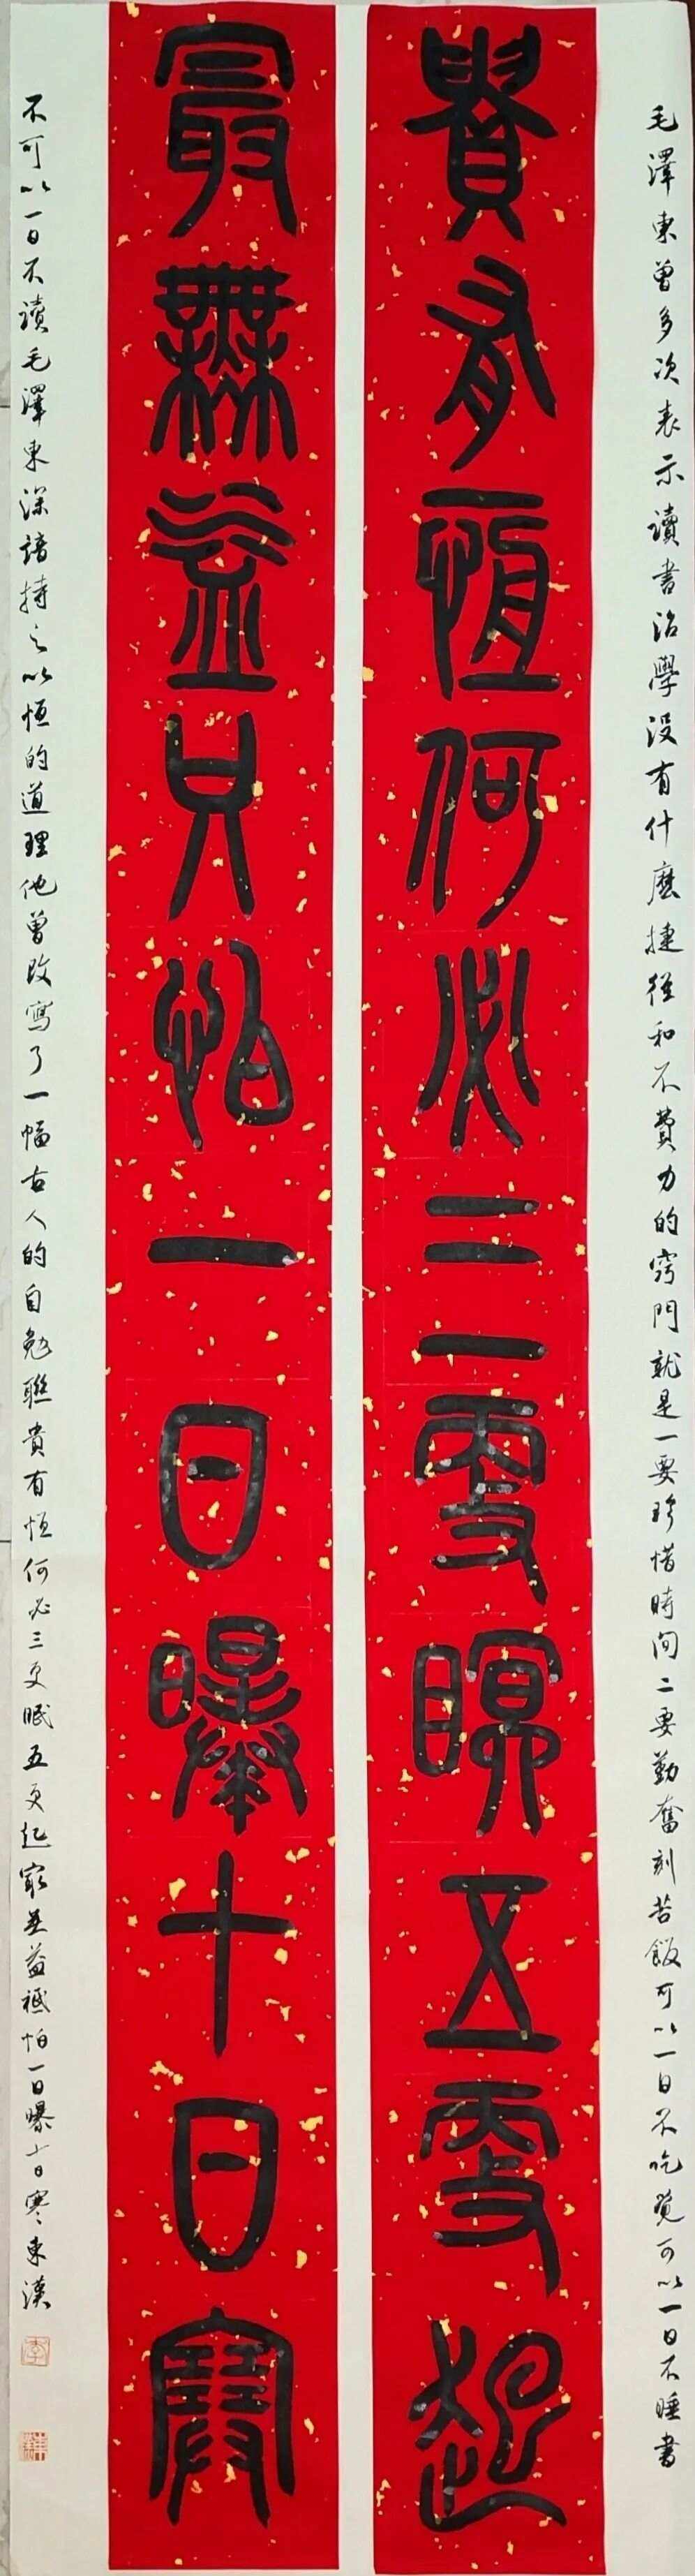 毛澤東曾多次表示讀書治學没有什麽捷徑和不費力的竅門就是一要珍惜時间二要勤奮刻苦飯可以一日不吃覺可以一日不睡書
貴有恆何必三更瞑五更起
最無益只怕一日曝十日寒
不可以一日不讀毛澤東深諳持之以恒的道理他曾改寫了一幅古人的自勉聯貴有恒何必三更眠五更起最無益祗怕一日曝十日寒東漢